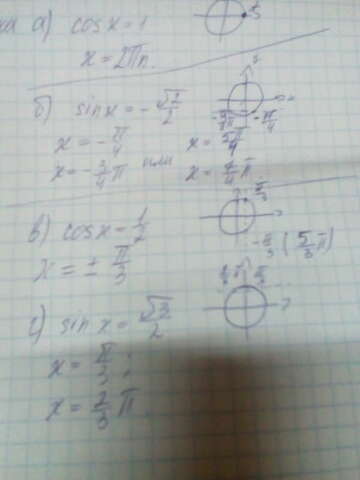 а) cos x = 1
x = 2πn.
б) sin x = - √2/2
x = - π/4
x = - 3/4 π
или
x = 5π/4
x = 7/4 π.
- 3/4 π
- π/4
в) cos x = 1/2
x = ± π/3
π/3
- π/3 (5/3 π)
г) sin x = √3/2
x = π/3;
x = 2/3 π